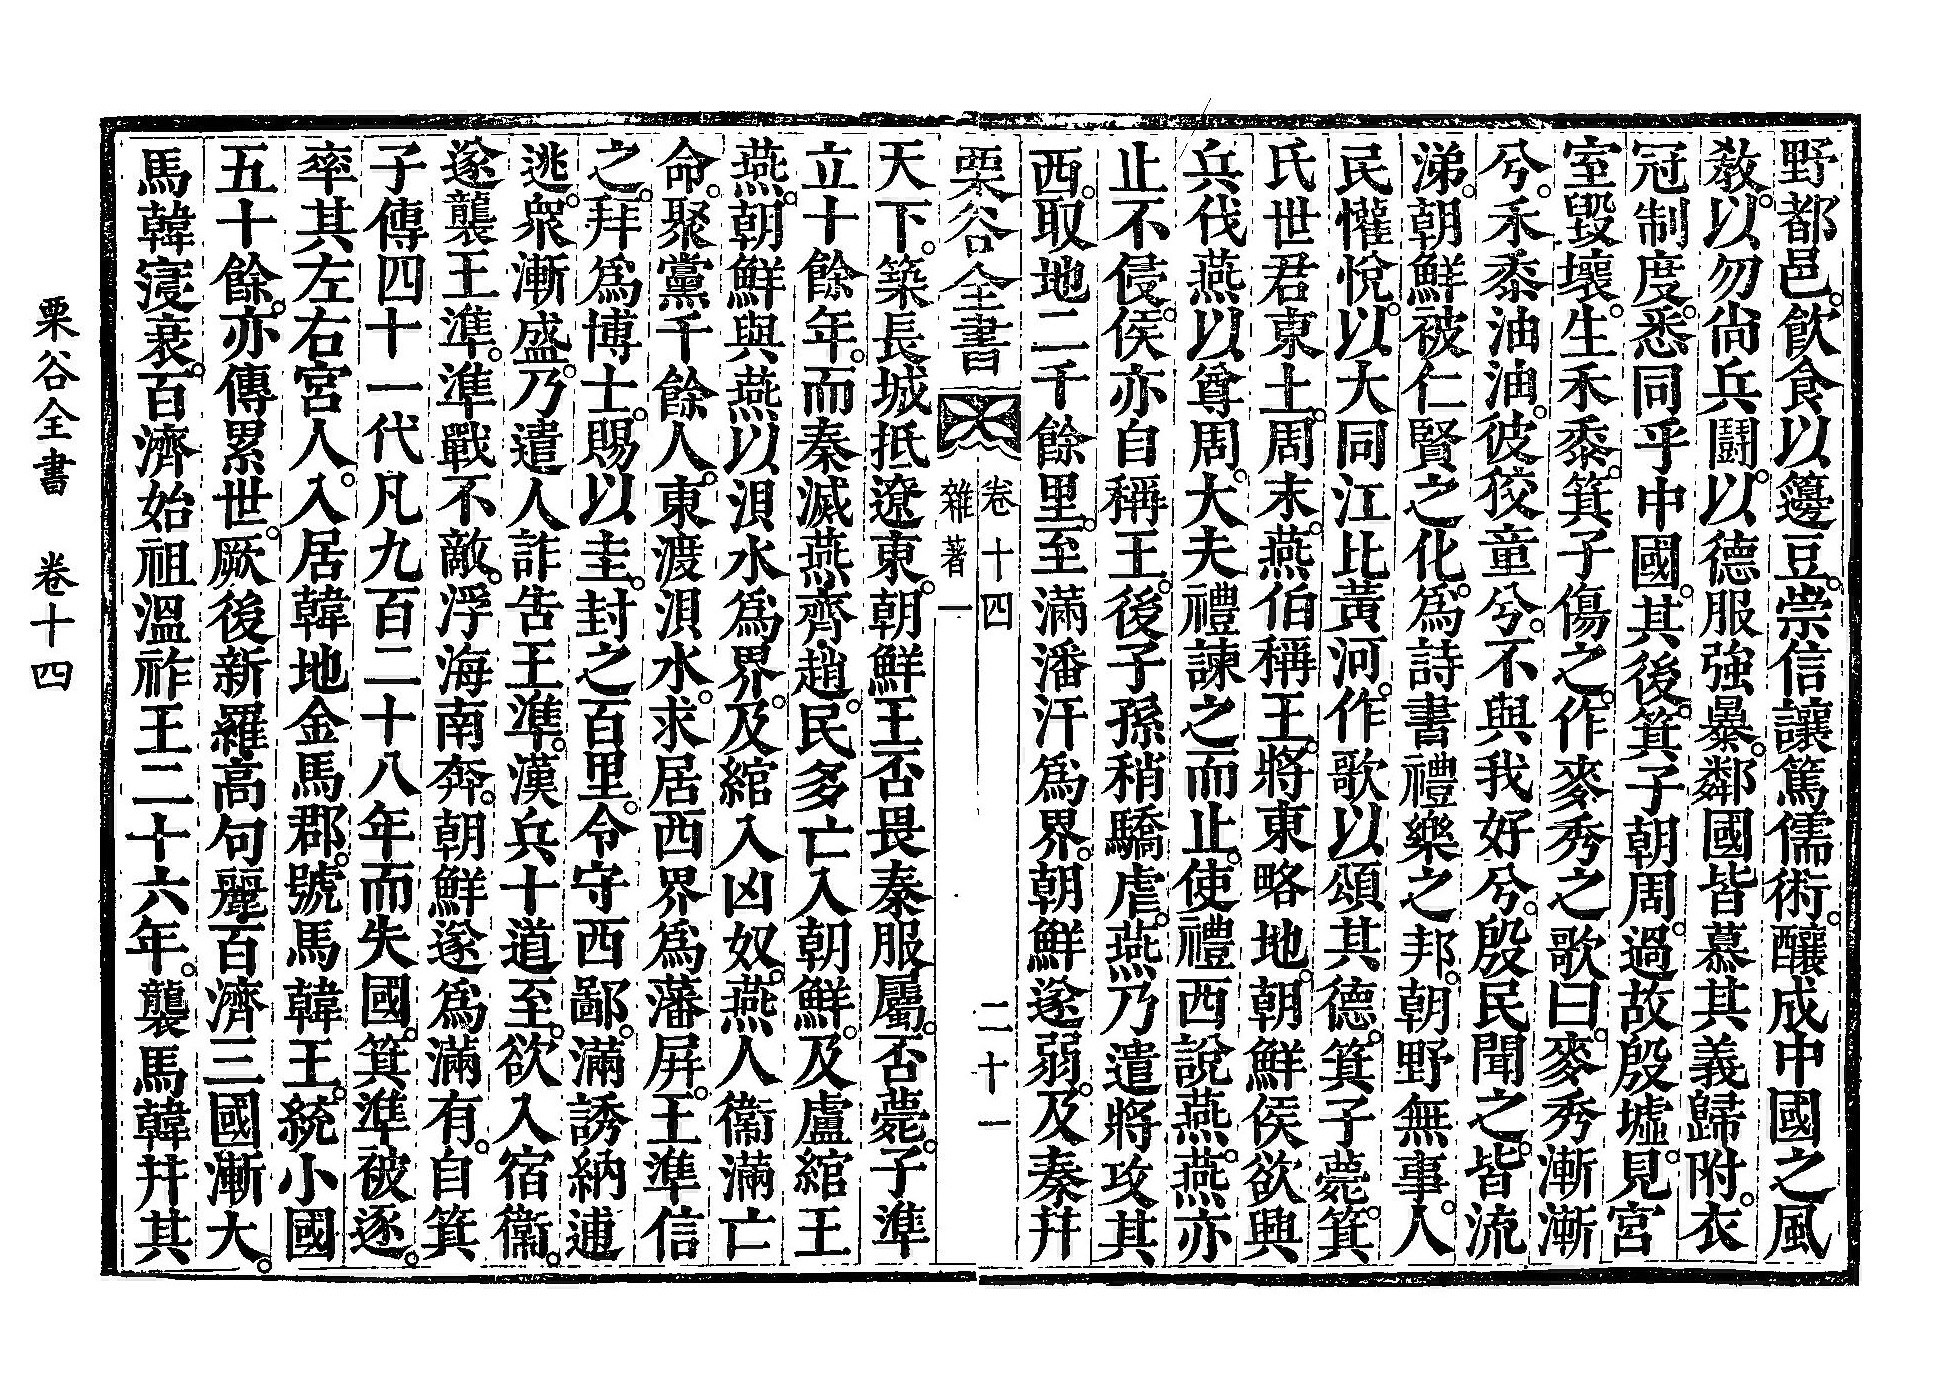 野都邑。飮食以籩豆。崇信讓篤儒術。釀成中國之風
敎。以勿尙兵鬪。以德服強暴。鄰國皆慕其義歸附。衣
冠制度。悉同乎中國。其後。箕子朝周。過故殷墟。見宮
室毀壞。生禾黍。箕子傷之。作麥秀之歌曰。麥秀漸漸
兮。禾黍油油。彼狡童兮。不與我好兮。殷民聞之。皆流
涕。朝鮮被仁賢之化。爲詩書禮樂之邦。朝野無事。人
民懽悅。以大同江比黃河。作歌以頌其德。箕子薨。箕
氏世君東土。周末。燕伯稱王。將東略地。朝鮮侯欲興
兵伐燕以尊周。大夫禮諫之而止。使禮西說燕。燕亦
止不侵。侯亦自稱王。後子孫稍驕虐。燕乃遣將攻其
西。取地二千餘里。至滿潘汗爲界。朝鮮遂弱。及秦幷
栗谷全書 卷十四 雜著一 二十一
天下。築長城抵遼東。朝鮮王否畏秦服屬。否薨。子準
立十餘年。而秦滅。燕齊趙民。多亡入朝鮮。及盧綰王
燕。朝鮮與燕以浿水爲界。及綰入凶奴。燕人衞滿亡
命。聚黨千餘人。東渡浿水。求居西界爲藩屛。王準信
之。拜爲博士。賜以圭。封之百里。令守西鄙。滿誘納逋
逃。衆漸盛。乃遣人詐告王準。漢兵十道至。欲入宿衞。
遂襲王準。準戰不敵。浮海南奔。朝鮮遂爲滿有。自箕
子傳四十一代凡九百二十八年而失國。箕準被逐。
率其左右宮人。入居韓地金馬郡。號馬韓王。統小國
五十餘。亦傳累世。厥後新羅高句麗百濟三國漸大。
馬韓寖衰。百濟始祖溫祚王二十六年。襲馬韓幷其
栗谷全書 卷十四